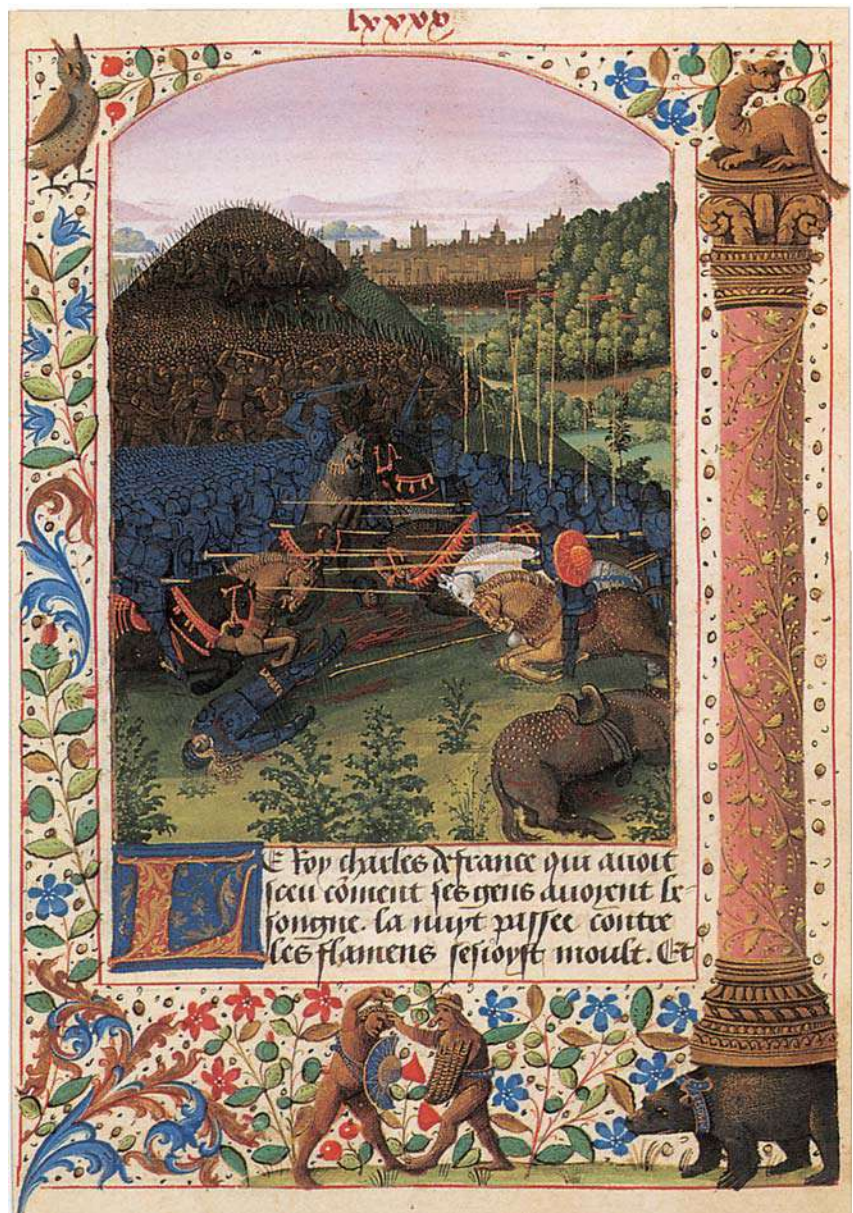 lxxxv
LE Roy charles de france qui auoit
sceu cõment ses gens auoyent be-
songne. la nuyt passee contre
les flamens sesioyst moult. Et